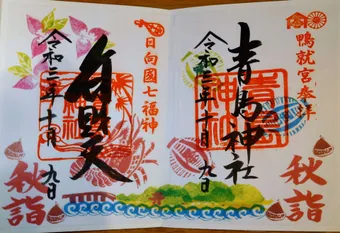 鴨就宮奉拝
青島神社
令和三年十月九日
秋詣
秋詣
日向國七福神
弁財天
令和三年十月九日
秋詣